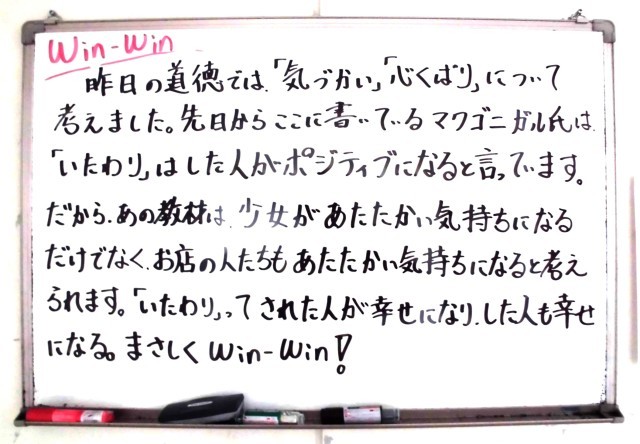 Win-Win
昨日の道徳では、「気づかい」「心くばり」について
考えました。先日からここに書いているマクゴニガル氏は、
「いたわり」はした人がポジティブになると言っています。
だから、あの教材は、少女があたたかい気持ちになる
だけでなく、お店の人たちもあたたかい気持ちになると考え
られます。「いたわり」ってされた人が幸せになり、した人も幸せ
になる。まさしくWin-Win!